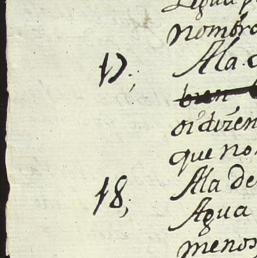 Legua p
nombra
17; Ala d
bien
oi dizen
que no
18; Ala de
Agua
menos